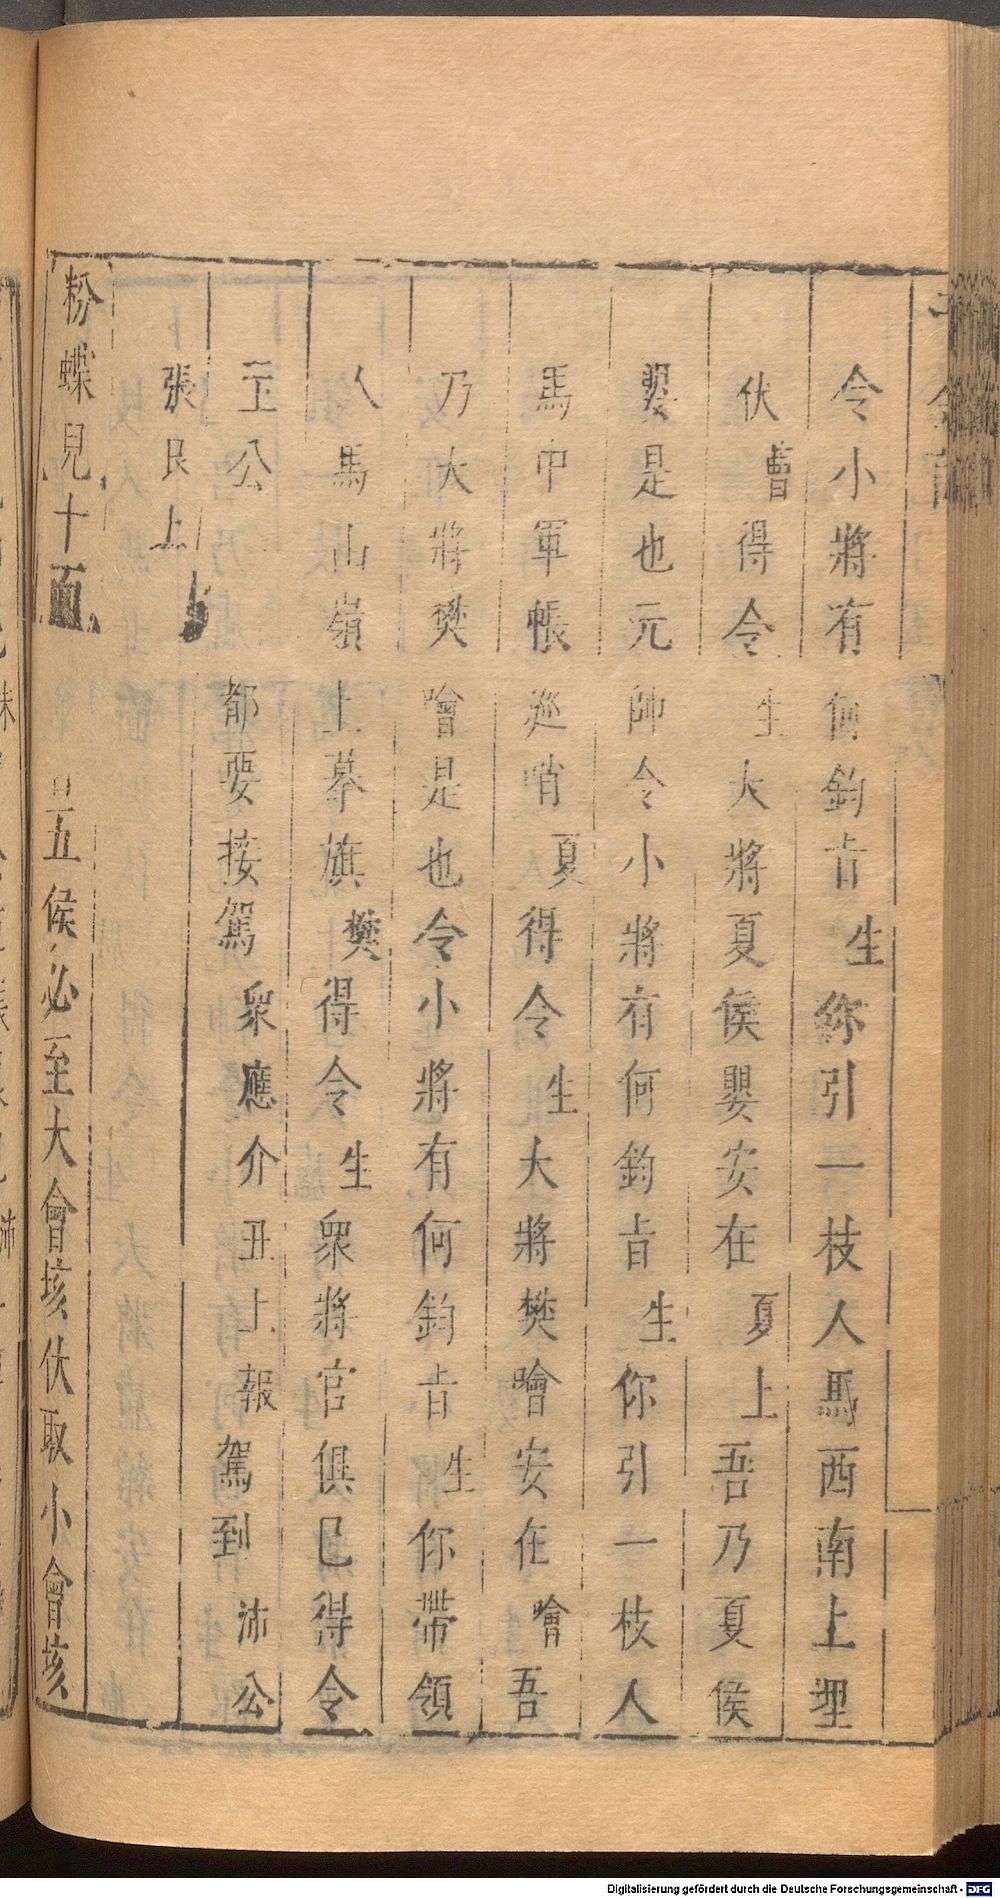 令小將有何鈞旨生你引一枝人馬西南上埋
伏曹得令生大將夏侯嬰安在夏上吾乃夏侯
嬰是也元帥令小將有何鈞旨生你引一枝人
馬中軍帳巡哨夏得令生大將樊噲安在噲吾
乃大將樊噲是也令小將有何鈞旨生你帶領
人馬山嶺上摹旗樊得令生眾將官俱已得令
主公都要接駕眾應介丑上報駕到沛公
張良上
粉蝶兒十面 五侯必至大會垓伏取小會垓
Digitalisierung gefördert durch die Deutsche Forschungsgemeinschaft - DFG